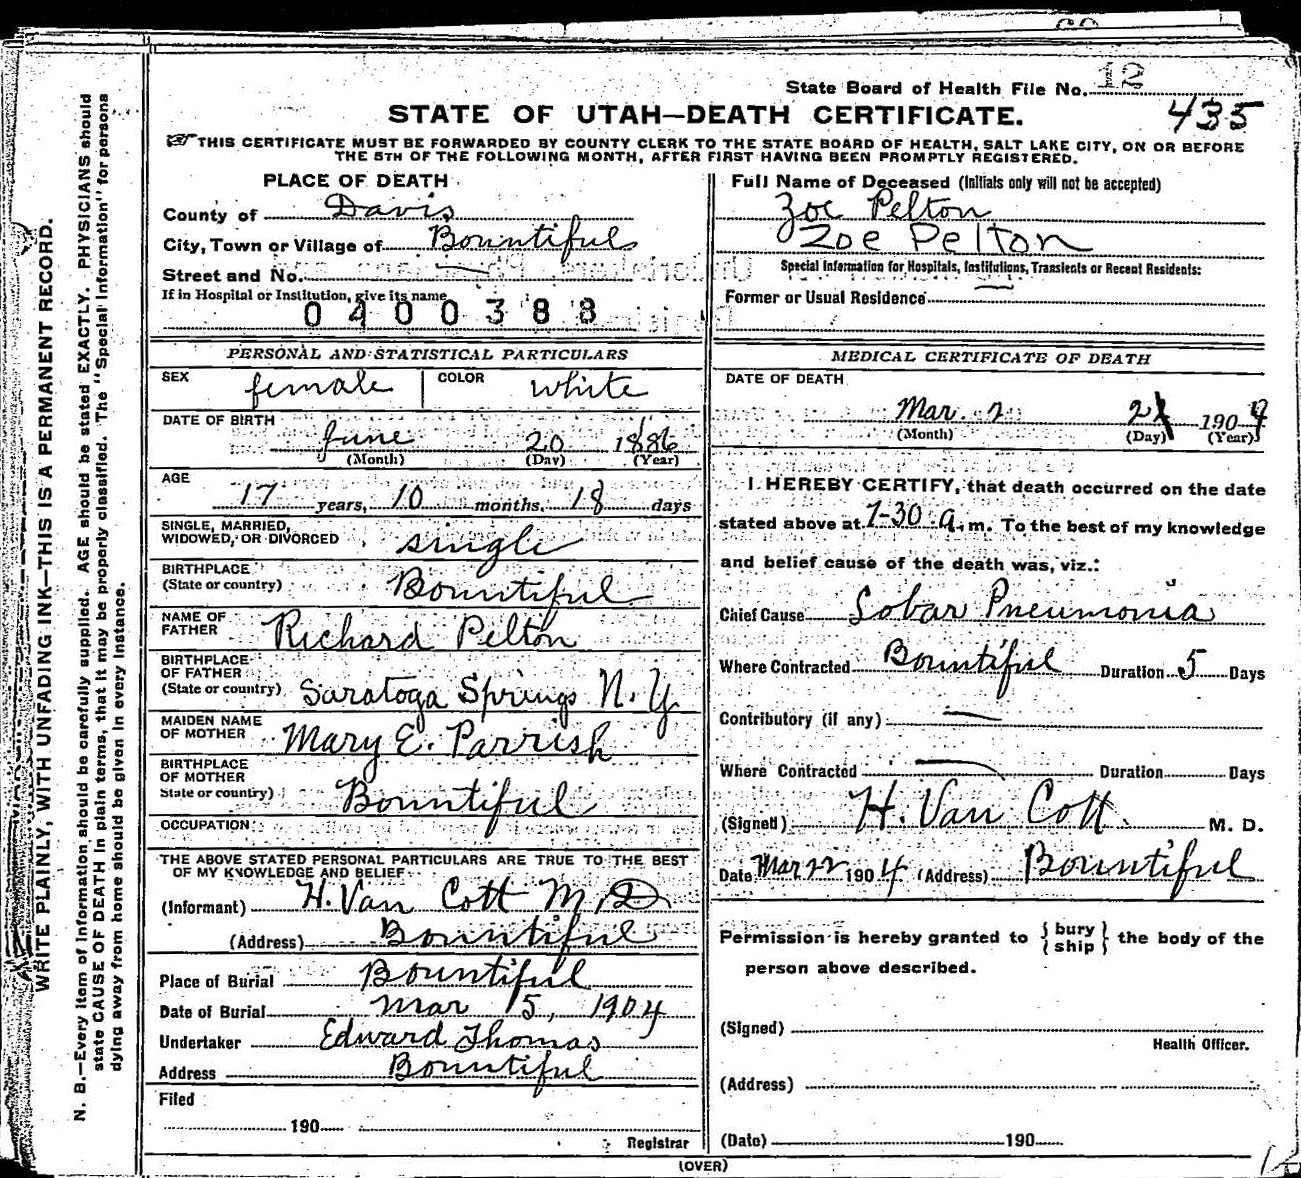 State Board of Health File No. 12
435
STATE OF UTAH—DEATH CERTIFICATE.
THIS CERTIFICATE MUST BE FORWARDED BY COUNTY CLERK TO THE STATE BOARD OF HEALTH, SALT LAKE CITY, ON OR BEFORE
THE 5TH OF THE FOLLOWING MONTH, AFTER FIRST HAVING BEEN PROMPTLY REGISTERED.
WRITE PLAINLY, WITH UNFADING INK—THIS IS A PERMANENT RECORD.
N. B.—Every item of information should be carefully supplied. AGE should be stated EXACTLY. PHYSICIANS should
state CAUSE OF DEATH in plain terms, that it may be properly classified. The "Special Information" for persons
dying away from home should be given in every instance.
PLACE OF DEATH
County of Davis
City, Town or Village of Bountiful
Street and No. —
If in Hospital or Institution, give its name
0400388
PERSONAL AND STATISTICAL PARTICULARS
SEX female COLOR white
DATE OF BIRTH
June 20 1886
(Month) (Day) (Year)
AGE
17 years, 10 months, 18 days
SINGLE, MARRIED,
WIDOWED, OR DIVORCED single
BIRTHPLACE
(State or country) Bountiful
NAME OF
FATHER Richard Pelton
BIRTHPLACE
OF FATHER
(State or country) Saratoga Springs N. Y.
MAIDEN NAME
OF MOTHER Mary E. Parrish
BIRTHPLACE
OF MOTHER
State or country) Bountiful
OCCUPATION
THE ABOVE STATED PERSONAL PARTICULARS ARE TRUE TO THE BEST
OF MY KNOWLEDGE AND BELIEF
(Informant) H. Van Cott M D
(Address) Bountiful
Place of Burial Bountiful
Date of Burial Mar 5, 1904
Undertaker Edward Thomas
Address Bountiful
Filed
190
Registrar
Full Name of Deceased (Initials only will not be accepted)
Zoe Pelton
Zoe Pelton
Special Information for Hospitals, Institutions, Transients or Recent Residents:
Former or Usual Residence —
MEDICAL CERTIFICATE OF DEATH
DATE OF DEATH
Mar. 2 2 1904
(Month) (Day) (Year)
I HEREBY CERTIFY, that death occurred on the date
stated above at 7-30 a. m. To the best of my knowledge
and belief cause of the death was, viz.:
Chief Cause Lobar Pneumonia
Where Contracted Bountiful Duration 5 Days
Contributory (if any) —
Where Contracted — Duration Days
(Signed) H. Van Cott. M. D.
Date Mar 1904 (Address) Bountiful
Permission is hereby granted to { bury
ship } the body of the
person above described.
(Signed)
Health Officer.
(Address)
(Date) 190
(OVER)